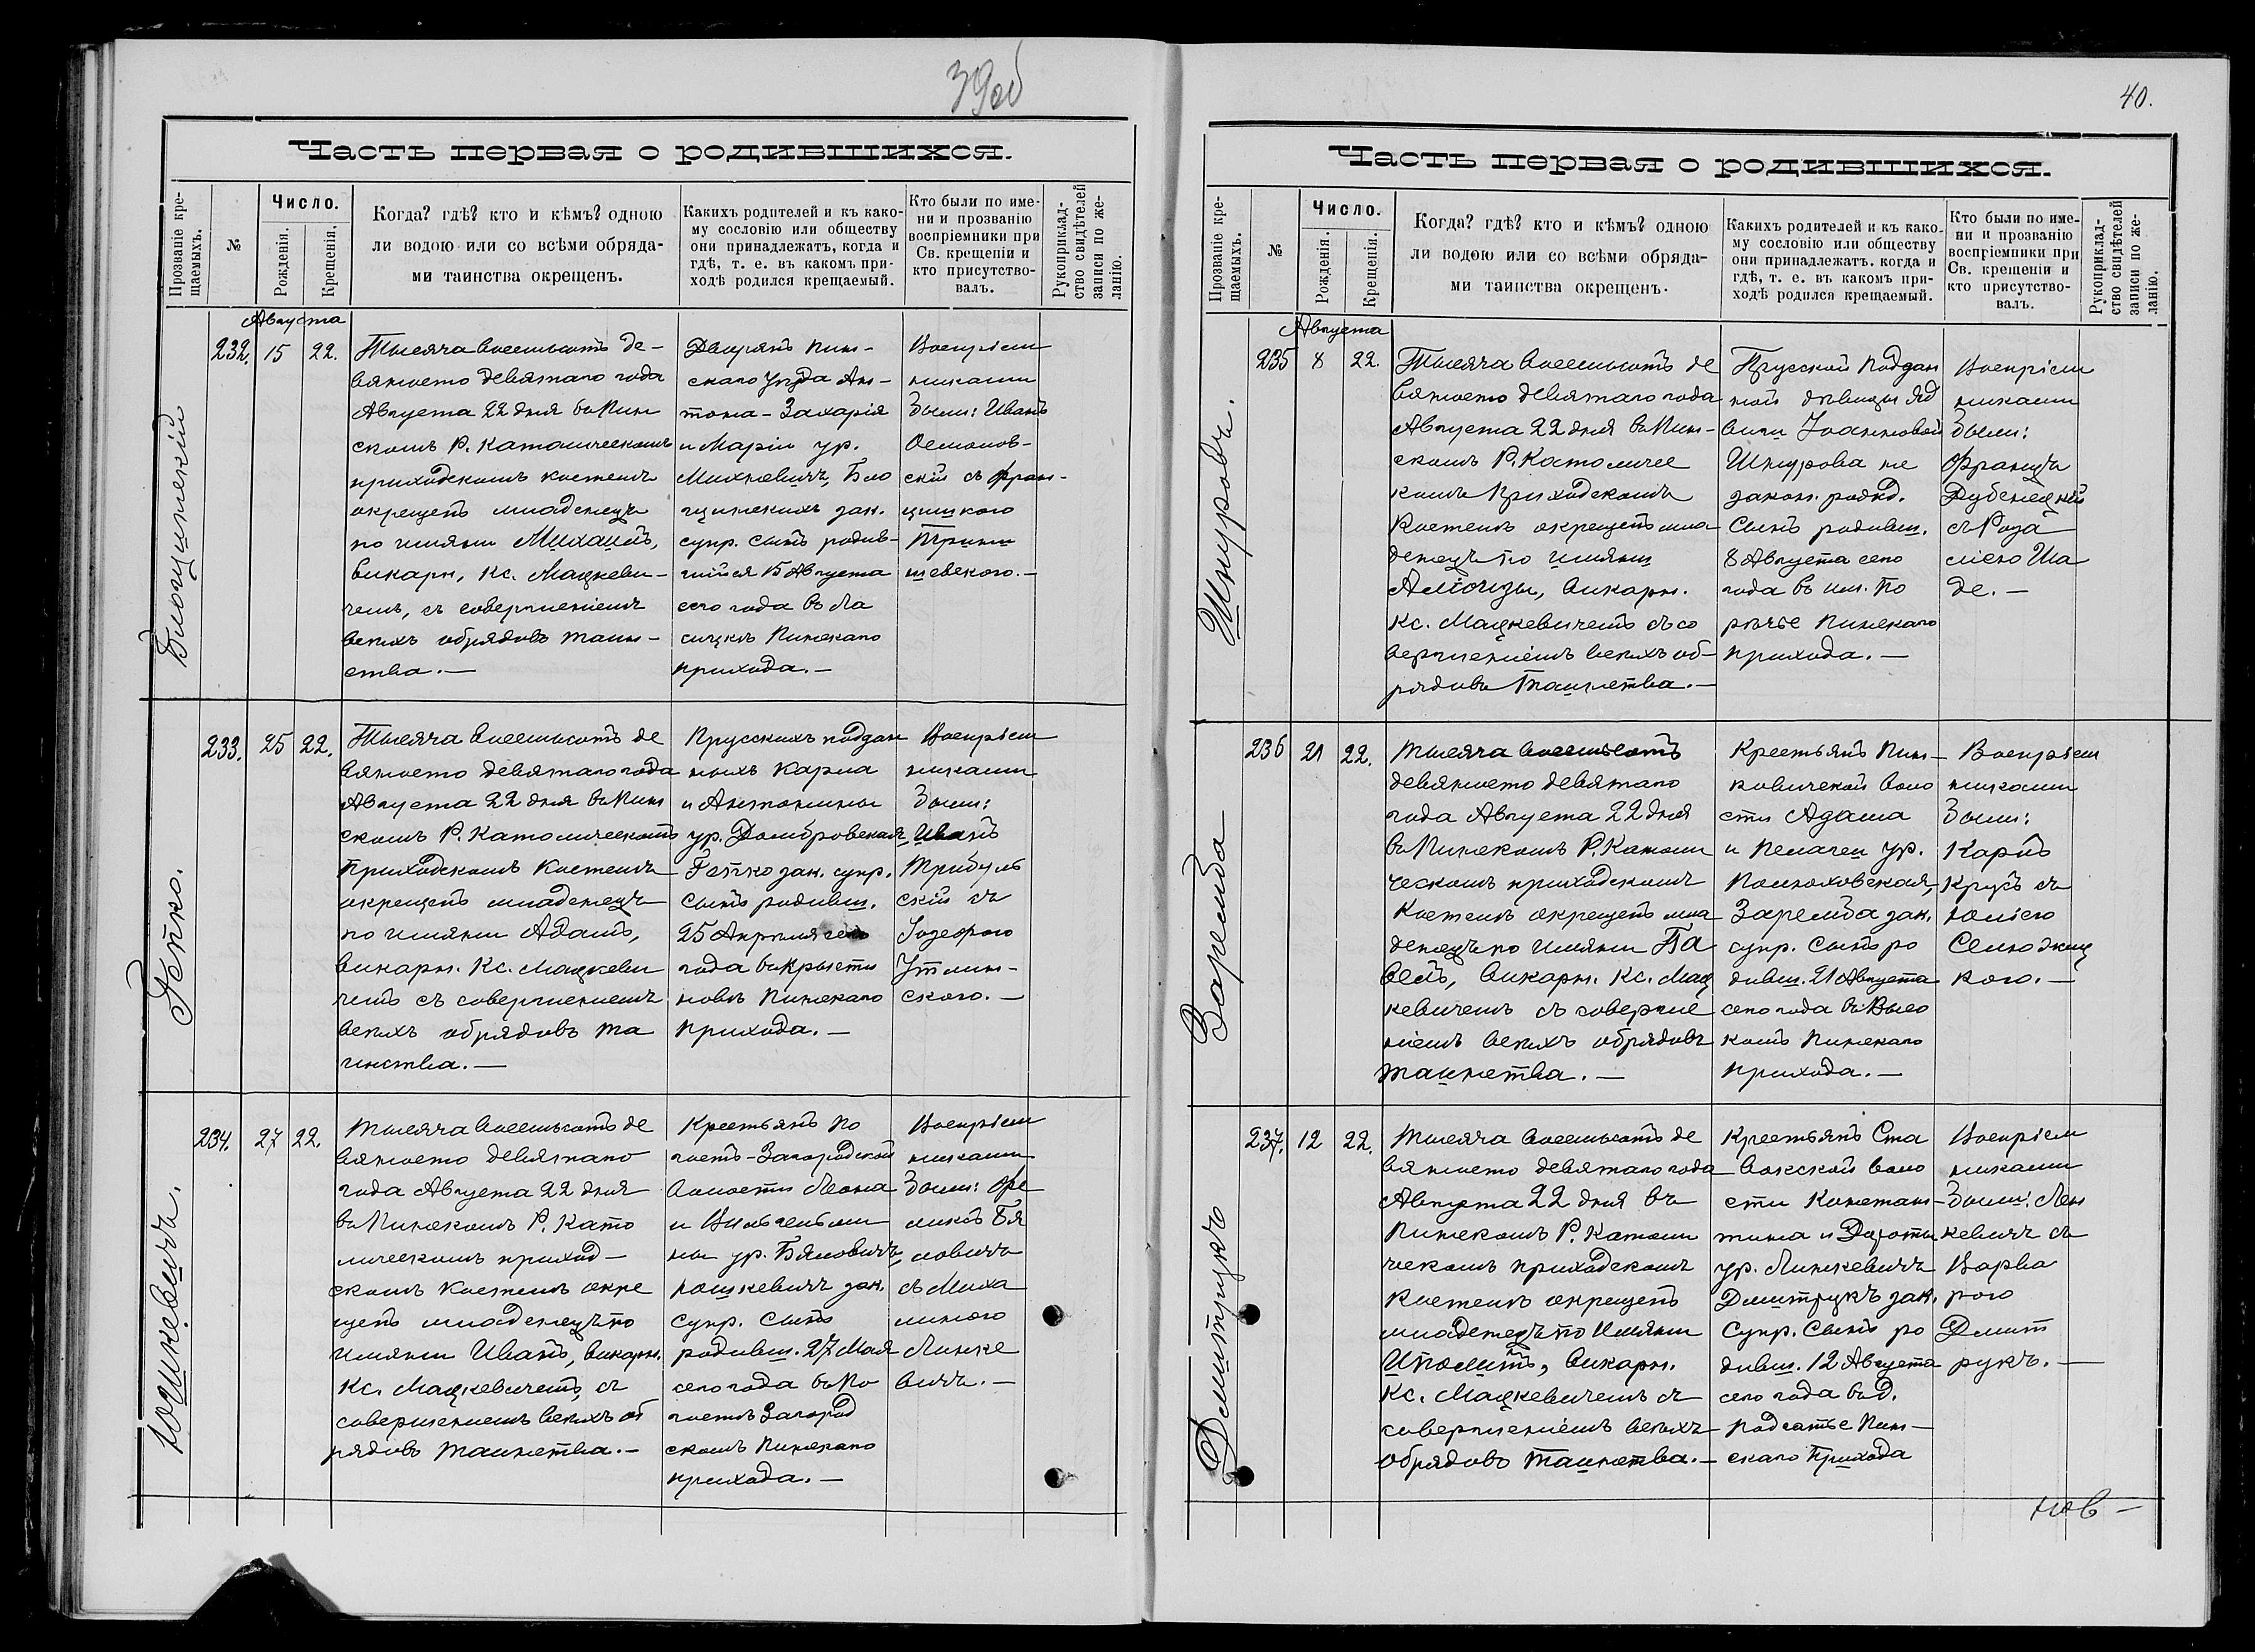 39об
Часть первая о родившихся.
Прозваніе кре-
щаемыхъ.
№
Число.
Рожденія.
Крещенія.
Когда? гдѣ? кто и кѣмъ? одною
ли водою или со всѣми обряда-
ми таинства окрещенъ.
Какихъ родителей и къ како-
му сословію или обществу
они принадлежатъ, когда и
гдѣ, т. е. въ какомъ при-
ходѣ родился крещаемый.
Кто были по име-
ни и прозванію
воспріемники при
Св. крещеніи и
кто присутство-
валъ.
Рукоприклад-
ство свидѣтелей
записи по же-
ланію.
Августа
232. 15 22.
Тысяча восемьсотъ де-
вяносто девятаго года
Августа 22 дня въ Пин
скомъ Р. Католическомъ
приходскомъ костелѣ
окрещенъ младенецъ
по имяни Михаилъ,
викарн. Кс. Мацкеви-
чемъ, съ совершеніемъ
всѣхъ обрядовъ таин-
ства.—
Дворянъ Пин-
скаго уѣзда Ан-
тона-Захарія
и Маріи ур.
Михневичъ, Бло
цинскихъ зак.
супр. сынъ родив-
шійся 15 Августа
сего года въ Ла
сицкѣ Пинскаго
прихода.—
Воспріем
никами
были: Иванъ
Осмолов-
скій съ Фран-
цишкою
Трины
шевскою.—
233. 25 22.
Гетко.
Тысяча восемьсотъ де
вяносто девятаго года
Августа 22 дня въ Пин
скомъ Р. Католическомъ
Приходскомъ Костелѣ
окрещенъ младенецъ
по имяни Адамъ,
викарн. Кс. Мацкеви
чемъ съ совершениемъ
всѣхъ обрядовъ та
инства.—
Прусскихъ поддан
ныхъ Карла
и Антонины
ур. Домбровская,
Гетко зак. супр.
сынъ родивш.
25 Апрѣля сего
года въ Крысти
новѣ Пинскаго
прихода.—
Воспріем
никами
были:
Иванъ
Трибуль
скій съ
Юзефою
Утлин-
скою.—
234. 27 22.
Юшкевичъ.
Тысяча восемьсотъ де
вяносто девятаго
года Августа 22 дня
въ Пинскомъ Р. Като
лическомъ приход-
скомъ костелѣ окре
щенъ младенецъ по
имяни Иванъ, викарн.
Кс. Мацкевичемъ, съ
совершениемъ всѣхъ об
рядовъ таинства.—
Крестьянъ По
гостъ-Загородской
волости Леона
и Вильгельми
ны ур. Бяловичъ,
Юшкевичъ зак.
супр. сынъ
родивш. 27 Мая
сего года въ По
гостѣ Загород
скомъ Пинскаго
прихода.—
Воспріем
никами
были: Фе
ликсъ Бя
ловичъ
съ Миха
линою
Линке
вичъ.—
40.
Часть первая о родившихся.
Прозваніе кре-
щаемыхъ.
№
Число.
Рожденія.
Крещенія.
Когда? гдѣ? кто и кѣмъ? одною
ли водою или со всѣми обряда-
ми таинства окрещенъ.
Какихъ родителей и къ како-
му сословію или обществу
они принадлежатъ. когда и
гдѣ, т. е. въ какомъ при-
ходѣ родился крещаемый.
Кто были по име-
ни и прозванію
воспріемники при
Св. крещеніи и
кто присутство-
валъ.
Рукоприклад-
ство свидѣтелей
записи по же-
ланію.
Августа
235 8 22.
Шнуровъ.
Тысяча восемьсотъ де
вяносто девятаго года
Августа 22 дня въ Пин-
скомъ Р. Католичес
комъ Приходскомъ
Костелѣ окрещенъ мла
денецъ по имяни
Алоизы, викарн.
Кс. Мацкевичемъ съ со
вершеніемъ всѣхъ об-
рядовъ Таинства.—
Прусской поддан
ной дѣвицы Яд
виги Іоанновой
Шнурова не
закон. рожд.
Сынъ родивш.
8 Августа сего
года въ им. По
рѣчье Пинскаго
прихода.—
Воспріем
никами
были:
Францъ
Дубенецкій
съ Роза
ліею Ша
де.—
236 21 22.
Заремба
Тысяча восемьсотъ
девяносто девятаго
года Августа 22 дня
въ Пинскомъ Р. Католи
ческомъ приходскомъ
Костелѣ окрещенъ мла
денецъ по имяни Па
велъ, викарн. Кс. Мац
кевичемъ съ соверше
ніемъ всѣхъ обрядовъ
таинства.—
Крестьянъ Пин-
ковичской воло
сти Адама
и Пелагеи ур.
Полховская,
Заремба зак.
супр. Сынъ ро
дивш. 21 Августа
сего года въ Высо
комъ Пинскаго
прихода.—
Воспріем
никами
были:
Карлъ
Крусъ съ
Юліею
Семодиц
кою.—
237. 12 22.
Дмитрукъ
Тысяча восемьсотъ де
вяносто девятаго года
Августа 22 дня въ
Пинскомъ Р. Католи
ческомъ приходскомъ
Костелѣ окрещенъ
младенецъ по Имяни
Иполитъ, викарн.
Кс. Мацкевичемъ съ
совершеніемъ всѣхъ
обрядовъ таинства.—
Крестьянъ Ста
вокской воло
сти Констан-
тина и Дороты
ур. Линкевичъ
Дмитрукъ зак.
Супр. Сынъ ро
дивш. 12 Августа
сего года въ д.
Подгатье Пин-
скаго Прихода
Воспріем
никами
были: Лин
кевичъ съ
Варва
рою
Дмит
рукъ.—